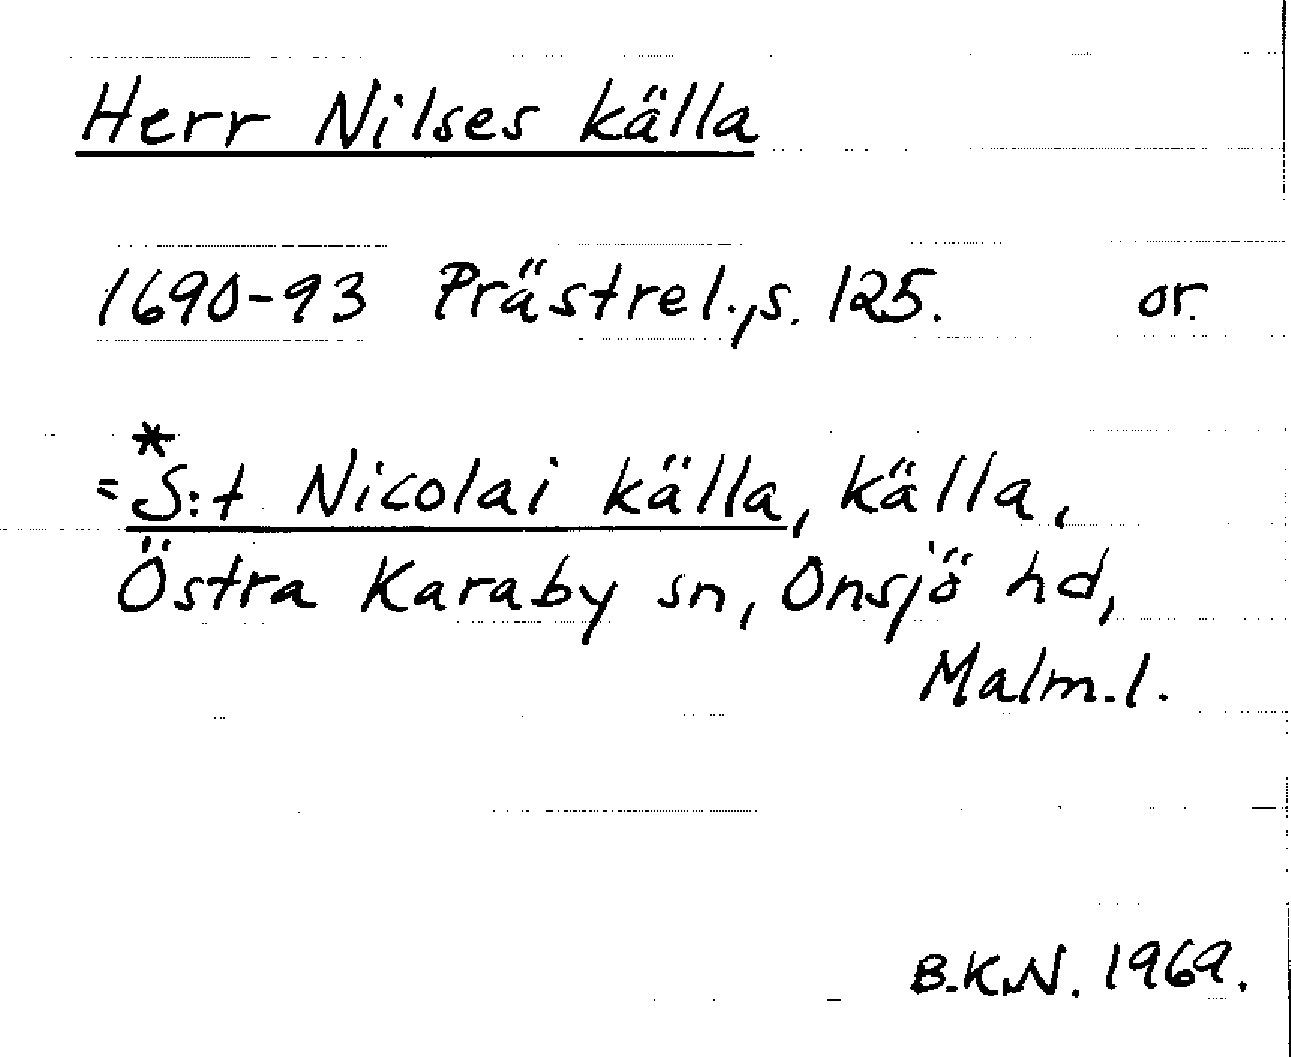 Herr Nilses källa
1690-93 Prästrel., s. 125. or.
= *S:t Nicolai källa, källa,
Östra Karaby sn, Onsjö hd,
Malm.l.
B.K.N. 1969.